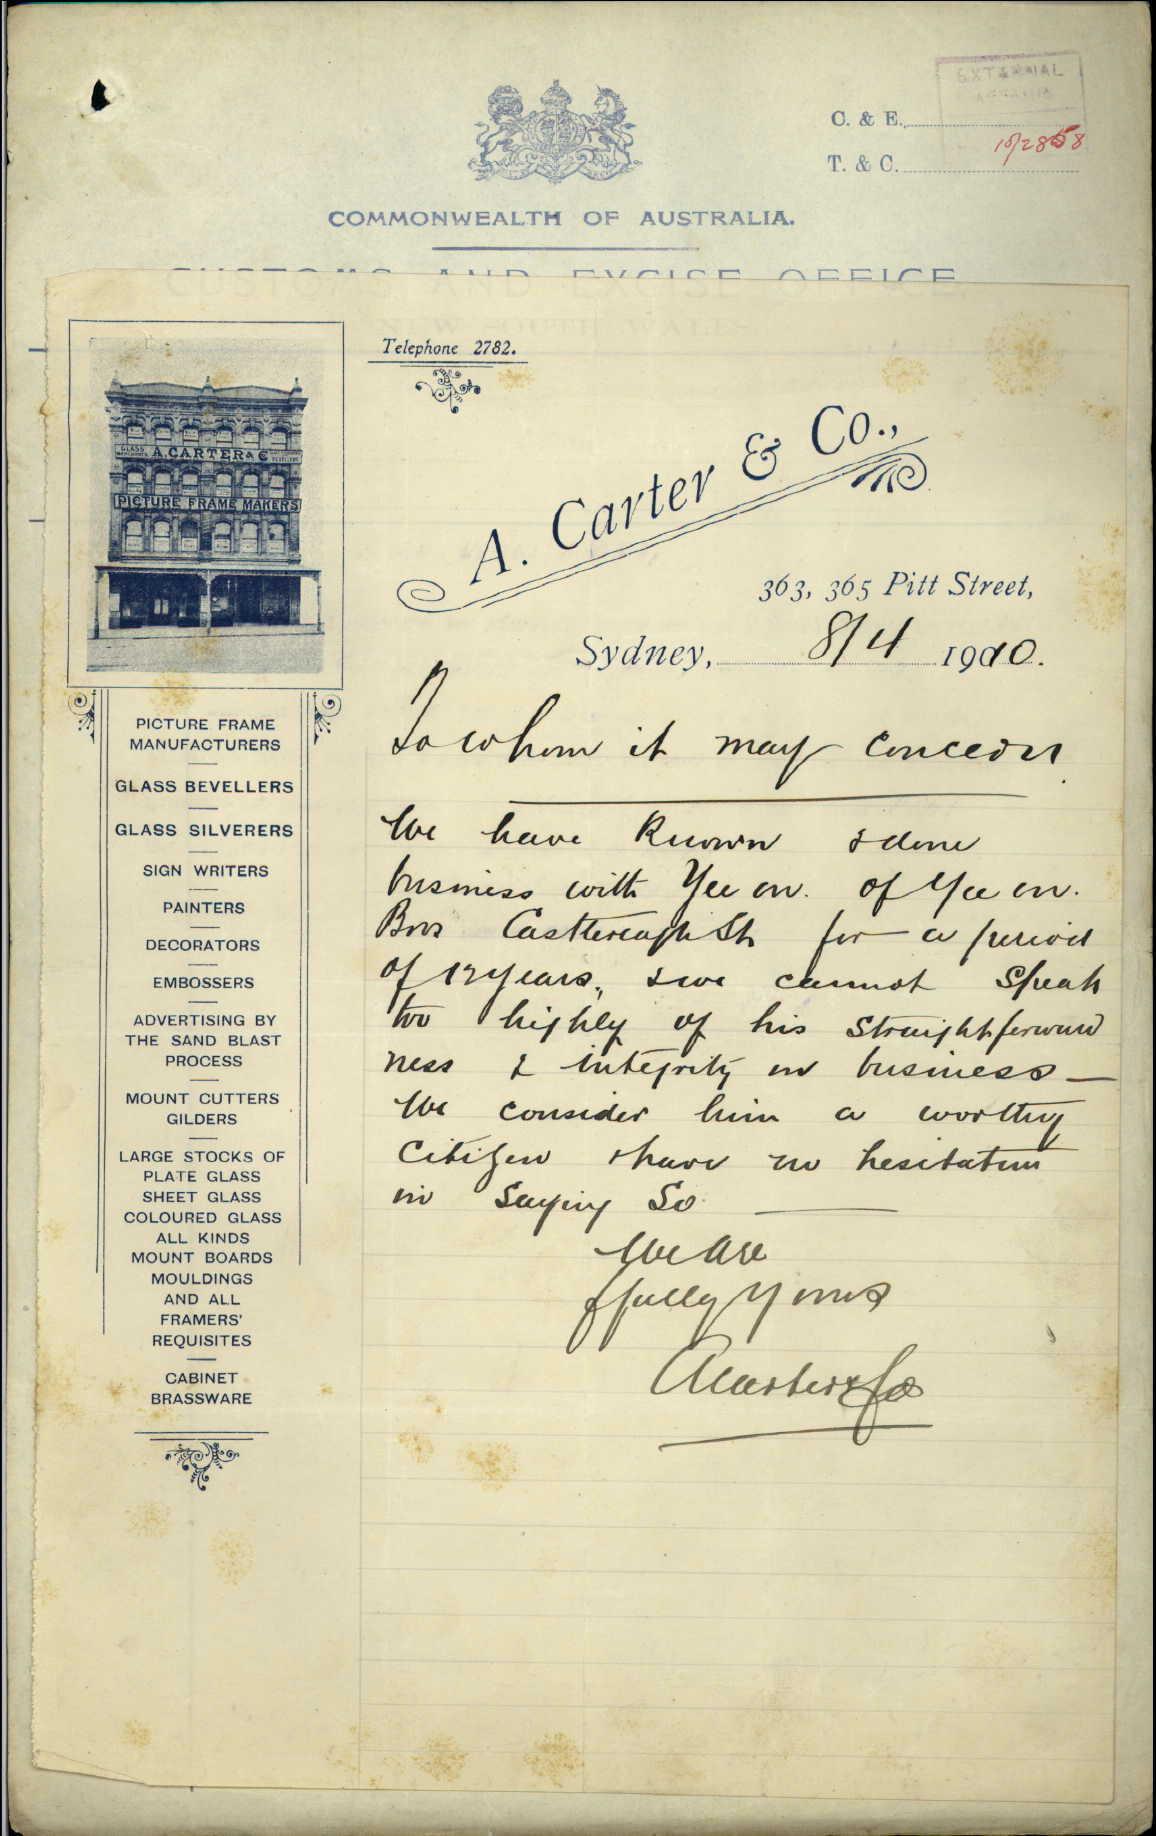 EXTERNAL
C. & E.
10/2858
T. & C.
COMMONWEALTH OF AUSTRALIA.
CUSTOMS AND EXCISE OFFICE
NEW SOUTH WALES
Telephone 2782.
A. CARTER & Co
PICTURE FRAME MAKERS
A. Carter & Co.,
363, 365 Pitt Street,
Sydney, 8/4 1910.
PICTURE FRAME
MANUFACTURERS
GLASS BEVELLERS
GLASS SILVERERS
SIGN WRITERS
PAINTERS
DECORATORS
EMBOSSERS
ADVERTISING BY
THE SAND BLAST
PROCESS
MOUNT CUTTERS
GILDERS
LARGE STOCKS OF
PLATE GLASS
SHEET GLASS
COLOURED GLASS
ALL KINDS
MOUNT BOARDS
MOULDINGS
AND ALL
FRAMERS'
REQUISITES
CABINET
BRASSWARE
To whom it may concern
We have known & done
business with Yee on. of Yee on.
Bros Castlereagh St for a period
of 12 years, & we cannot speak
too highly of his straightforward
ness & integrity in business —
We consider him a worthy
citizen & have no hesitation
in saying so
We are
ffully Yours
A Carter & Co